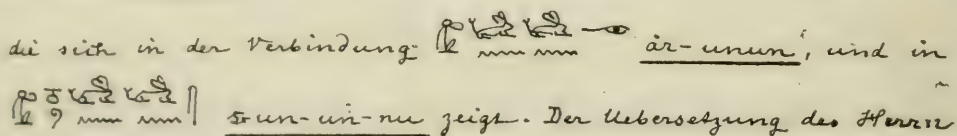 die sich in der Verbindung: år-unun', und in
s-un-un-nu zeigt. Der Uebersetzung des Herrn